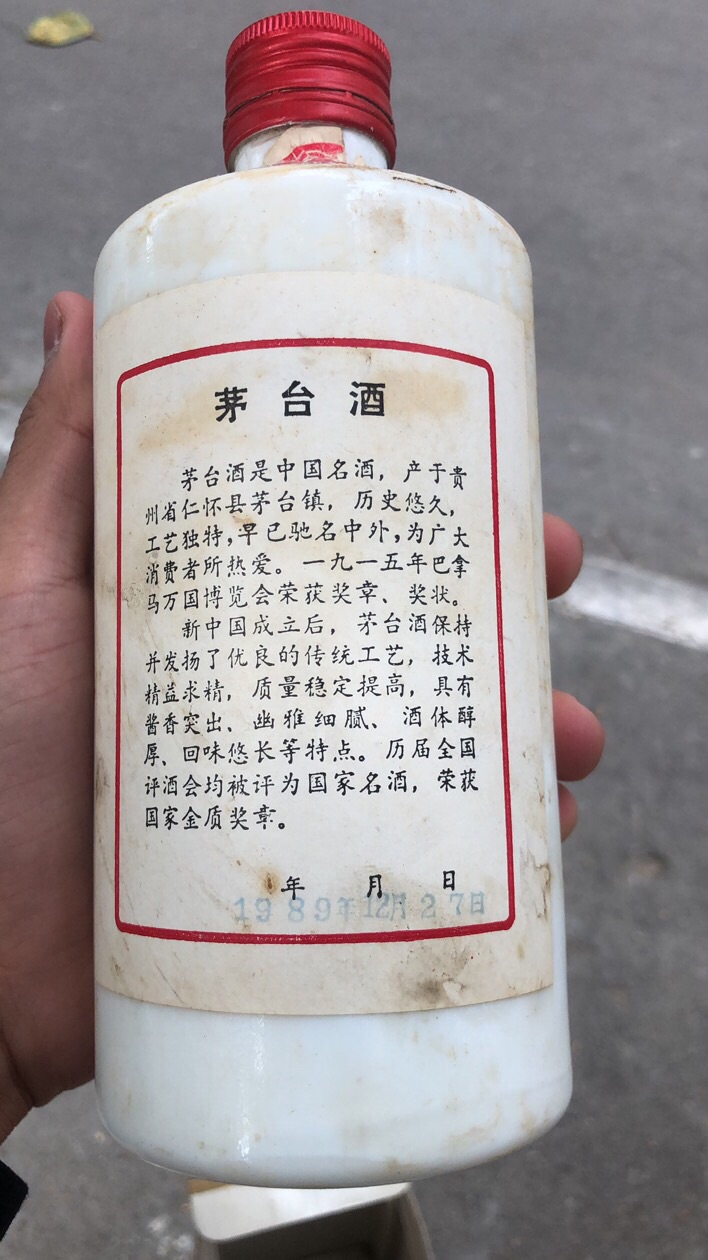 茅台酒
茅台酒是中国名酒，产于贵
州省仁怀县茅台镇，历史悠久，
工艺独特，早已驰名中外，为广大
消费者所热爱。一九一五年巴拿
马万国博览会荣获奖章、奖状。
新中国成立后，茅台酒保持
并发扬了优良的传统工艺，技术
精益求精，质量稳定提高，具有
酱香突出、幽雅细腻、酒体醇
厚、回味悠长等特点。历届全国
评酒会均被评为国家名酒，荣获
国家金质奖章。
年 月 日
1989年12月27日